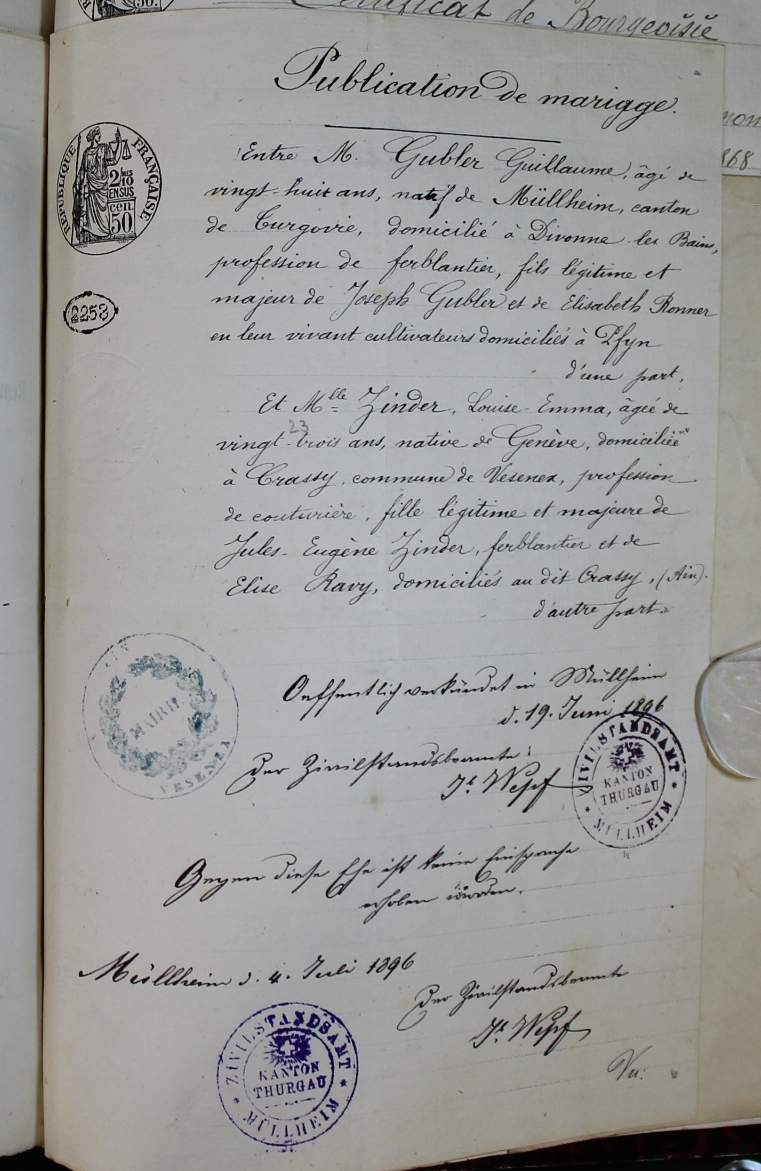 Certificat de Bourgeoisie
1868
Publication de mariage.
RÉPUBLIQUE FRANÇAISE
2/10
EN SUS
50 cen
2253
Entre M. Gubler Guillaume, âgé de
vingt-huit ans, natif de Müllheim, canton
de Turgovie, domicilié à Divonne les Bains,
profession de ferblantier, fils légitime et
majeur de Joseph Gubler et de Elisabeth Ronner
en leur vivant cultivateurs domiciliés à Pfyn
d'une part.
Et Mlle Zinder, Louise-Emma, âgée de
23
vingt-trois ans, native de Genève, domiciliée
à Crassy, commune de Vesenex, profession
de couturière, fille légitime et majeure de
Jules-Eugène Zinder, ferblantier et de
Elise Ravy, domiciliés au dit Crassy, (Ain).
d'autre part.
MAIRIE
VESENEX
Oeffentlich verkündet in Müllheim
d. 19. Juni 1896
Der Zivilstandsbeamte:
Js. Wepf
ZIVILSTANDSAMT
KANTON
THURGAU
MÜLLHEIM
Gegen diese Ehe ist keine Einsprache
erhoben worden.
Müllheim d. 4. Juli 1896
Der Zivilstandsbeamte
Js. Wepf
ZIVILSTANDSAMT
KANTON
THURGAU
MÜLLHEIM
Vu: